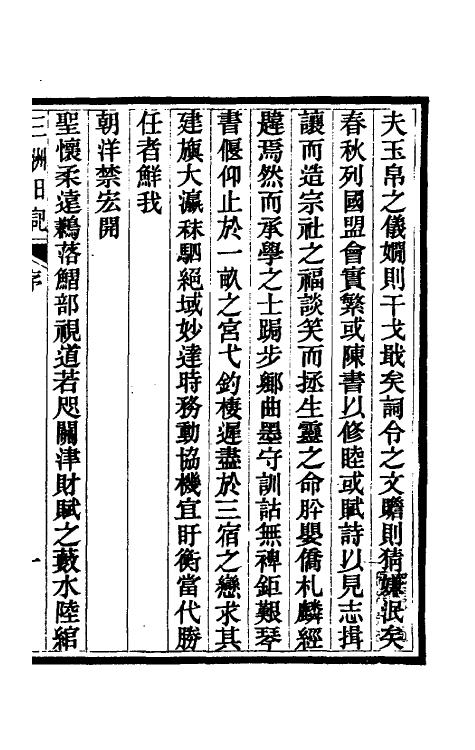 夫玉帛之儀嫺則干戈戢矣詞令之文贍則猜嫌泯矣
春秋列國盟會實繁或陳書以修睦或賦詩以見志揖
讓而造宗社之福談笑而拯生靈之命肸嬰僑札麟經
韙焉然而承學之士跼步鄉曲墨守訓詁無裨鉅艱琴
書偃仰止於一畝之宮弋釣棲遲盡於三宿之戀求其
建旗大瀛秣駟絕域妙達時務動協機宜盱衡當代勝
任者鮮我
朝洋禁宏開
聖懷柔遠鶼落鰼部視道若咫關津財賦之藪水陸綰
三洲日記 序 一